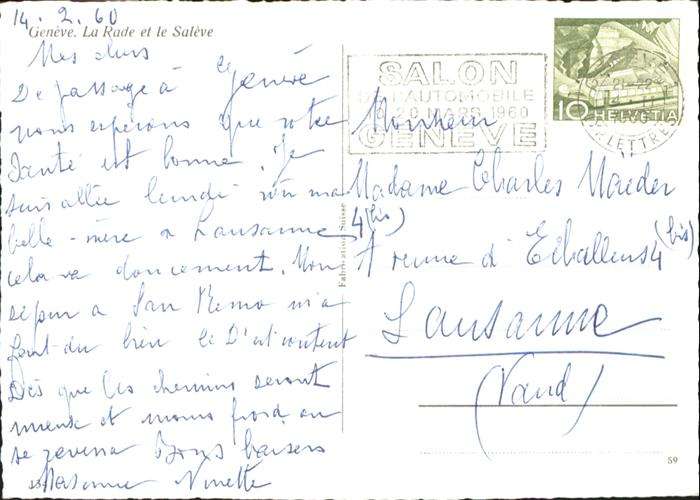 14. 2. 60
Genève. La Rade et le Salève
Mes chers
De passage à Genève
nous espérons que votre
santé est bonne. Je
suis allée lundi voir ma
belle-mère à Lausanne
cela va doucement. Mon
séjour à San Remo m'a
fait du bien et D' est content
Dès que les chemins seront
mieux et moins froid, on
se reverra Bons baisers
Ninette
SALON
DE L'AUTOMOBILE
MARS 1960
GENEVE
10 HELVETIA
LETTRES
Fabrication Suisse
Monsieur
Madame Charles Maeder
4 (bis) Avenue d'Echallens 4 (bis)
Lausanne
(Vaud)
S9